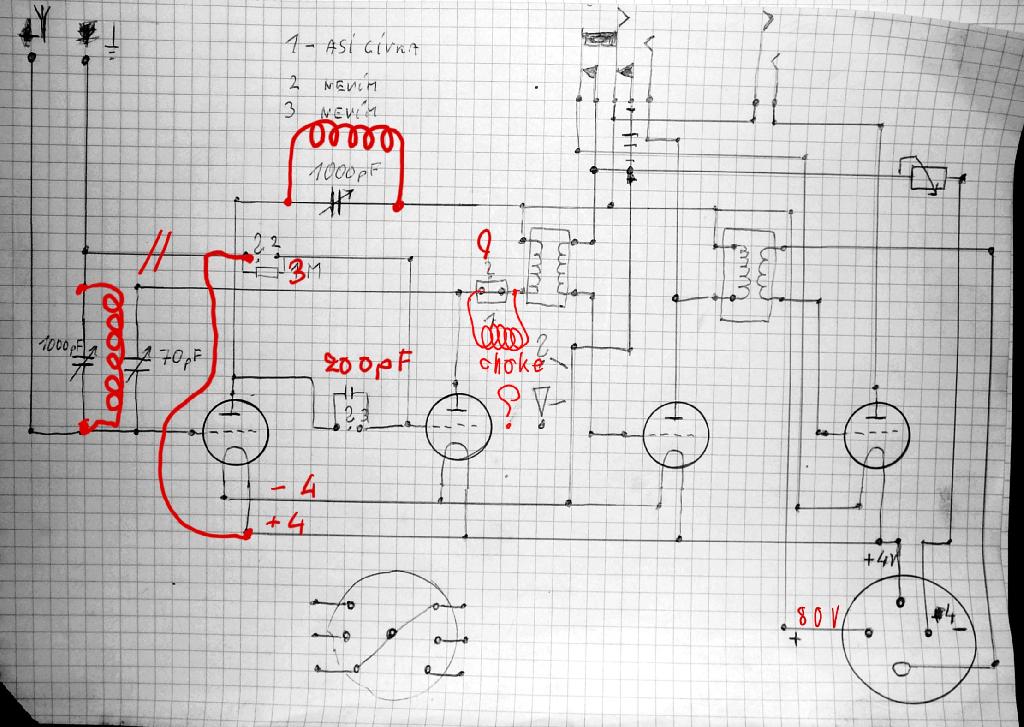 1 - ASI CÍVKA
2 NEVÍM
3 NEVÍM
1000pF
2
3 M
2
1000pF
70pF
200pF
choke
?
2 3
- 4
+ 4
+4V
80V
+
4 -